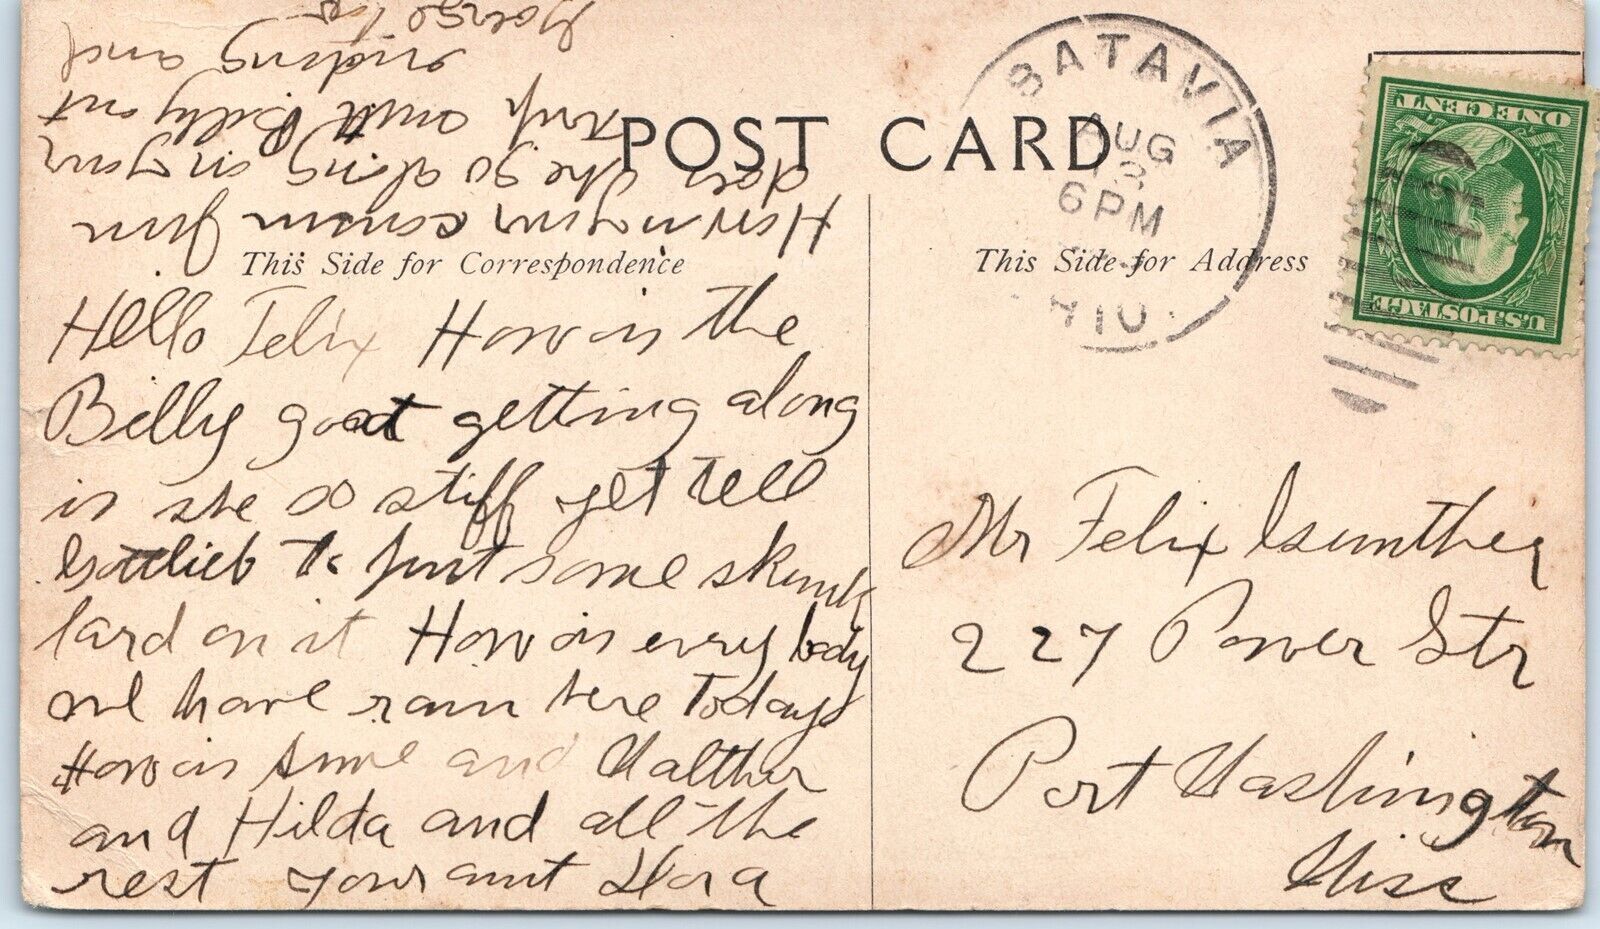 POST CARD
This Side for Correspondence
Hello Felix How is the
Billy goat getting along
is she so stiff yet tell
Gottlieb to put some skunk
lard on it How is every body
we have rain here Todays
How is and Walther
and Hilda and all the
rest your aunt Dora
How is your cousin
does she go along in your
trip and Billy out
riding and
George
This Side for Address
BATAVIA
AUG
6 PM
OHIO.
U.S. POSTAGE
ONE CENT
Mr Felix Guenther
227 Power Str
Port Washington
Wisc